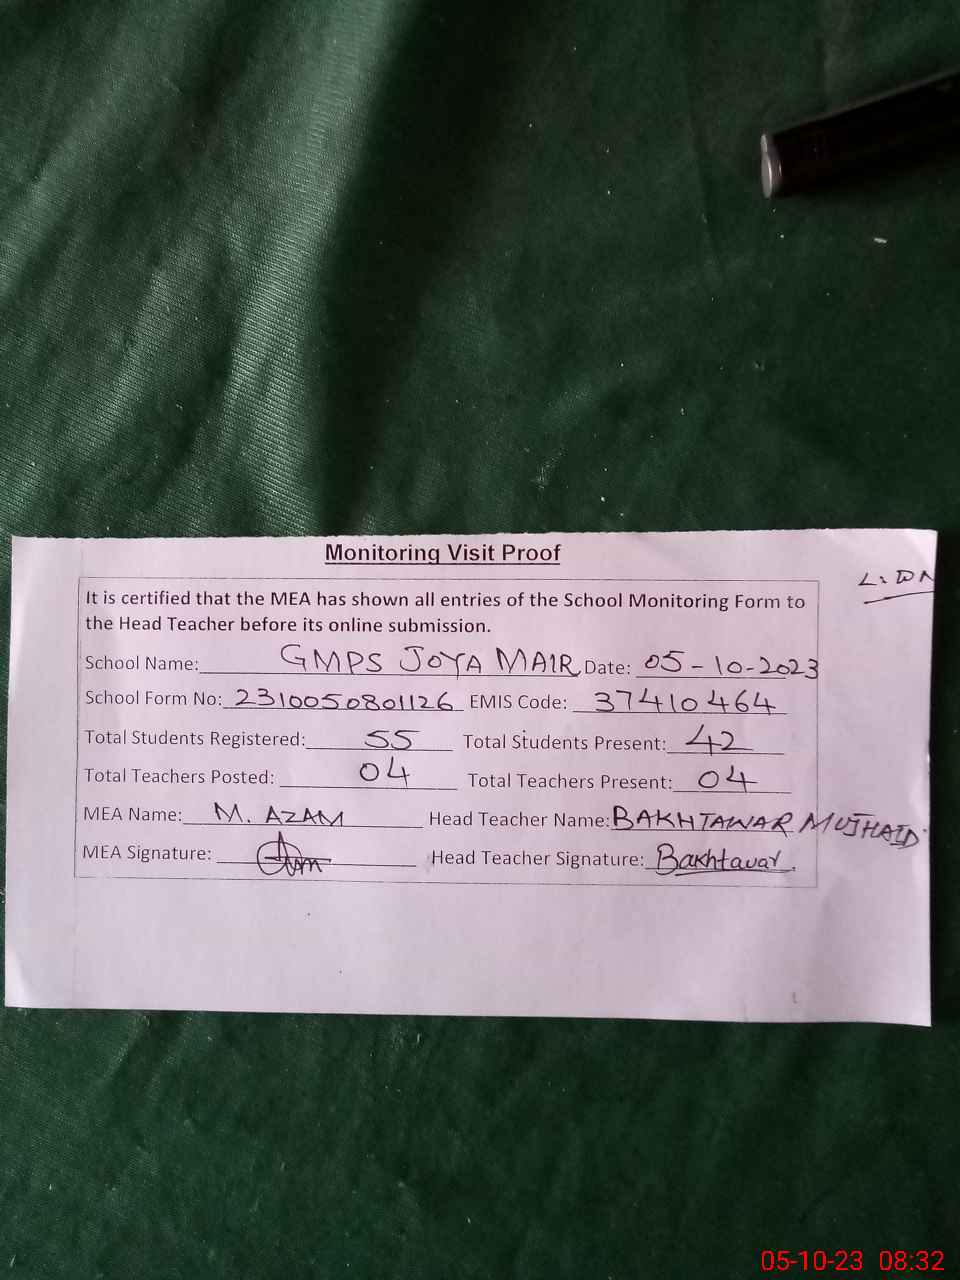 Monitoring Visit Proof
L: DN
It is certified that the MEA has shown all entries of the School Monitoring Form to
the Head Teacher before its online submission.
School Name: GMPS JOYA MAIR Date: 05-10-2023
School Form No: 2310050801126 EMIS Code: 37410464
Total Students Registered: 55 Total Students Present: 42
Total Teachers Posted: 04 Total Teachers Present: 04
MEA Name: M. AZAM Head Teacher Name: BAKHTAWAR MUJHAID
MEA Signature: Head Teacher Signature: Bakhtawar.
05-10-23 08:32